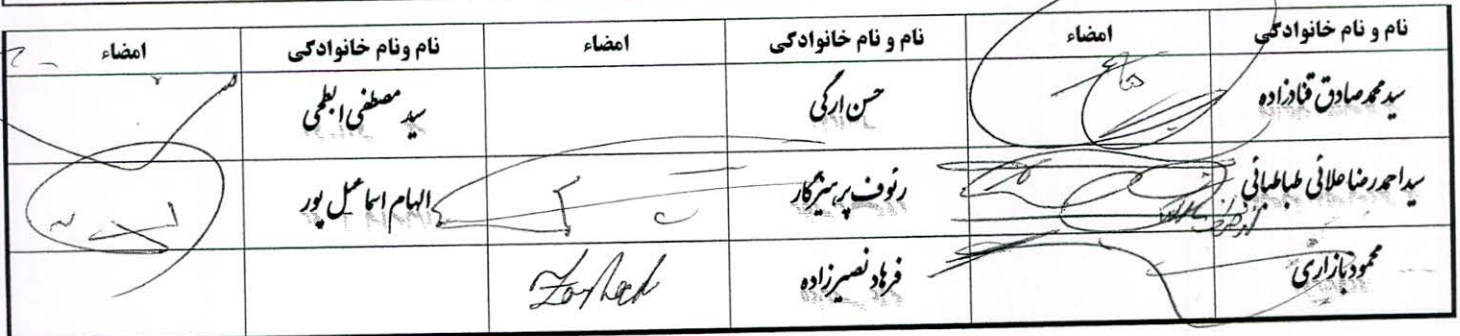 نام و نام خانوادگی امضاء نام و نام خانوادگی امضاء نام ونام خانوادگی امضاء
سیدمحمدصادق قنادزاده حسن ارگی سید مصطفی ابطحی
سیداحمدرضا علائی طباطبائی رئوف پرهیزگار الهام اسماعیل پور
محمود بازاری فرهاد نصیرزاده